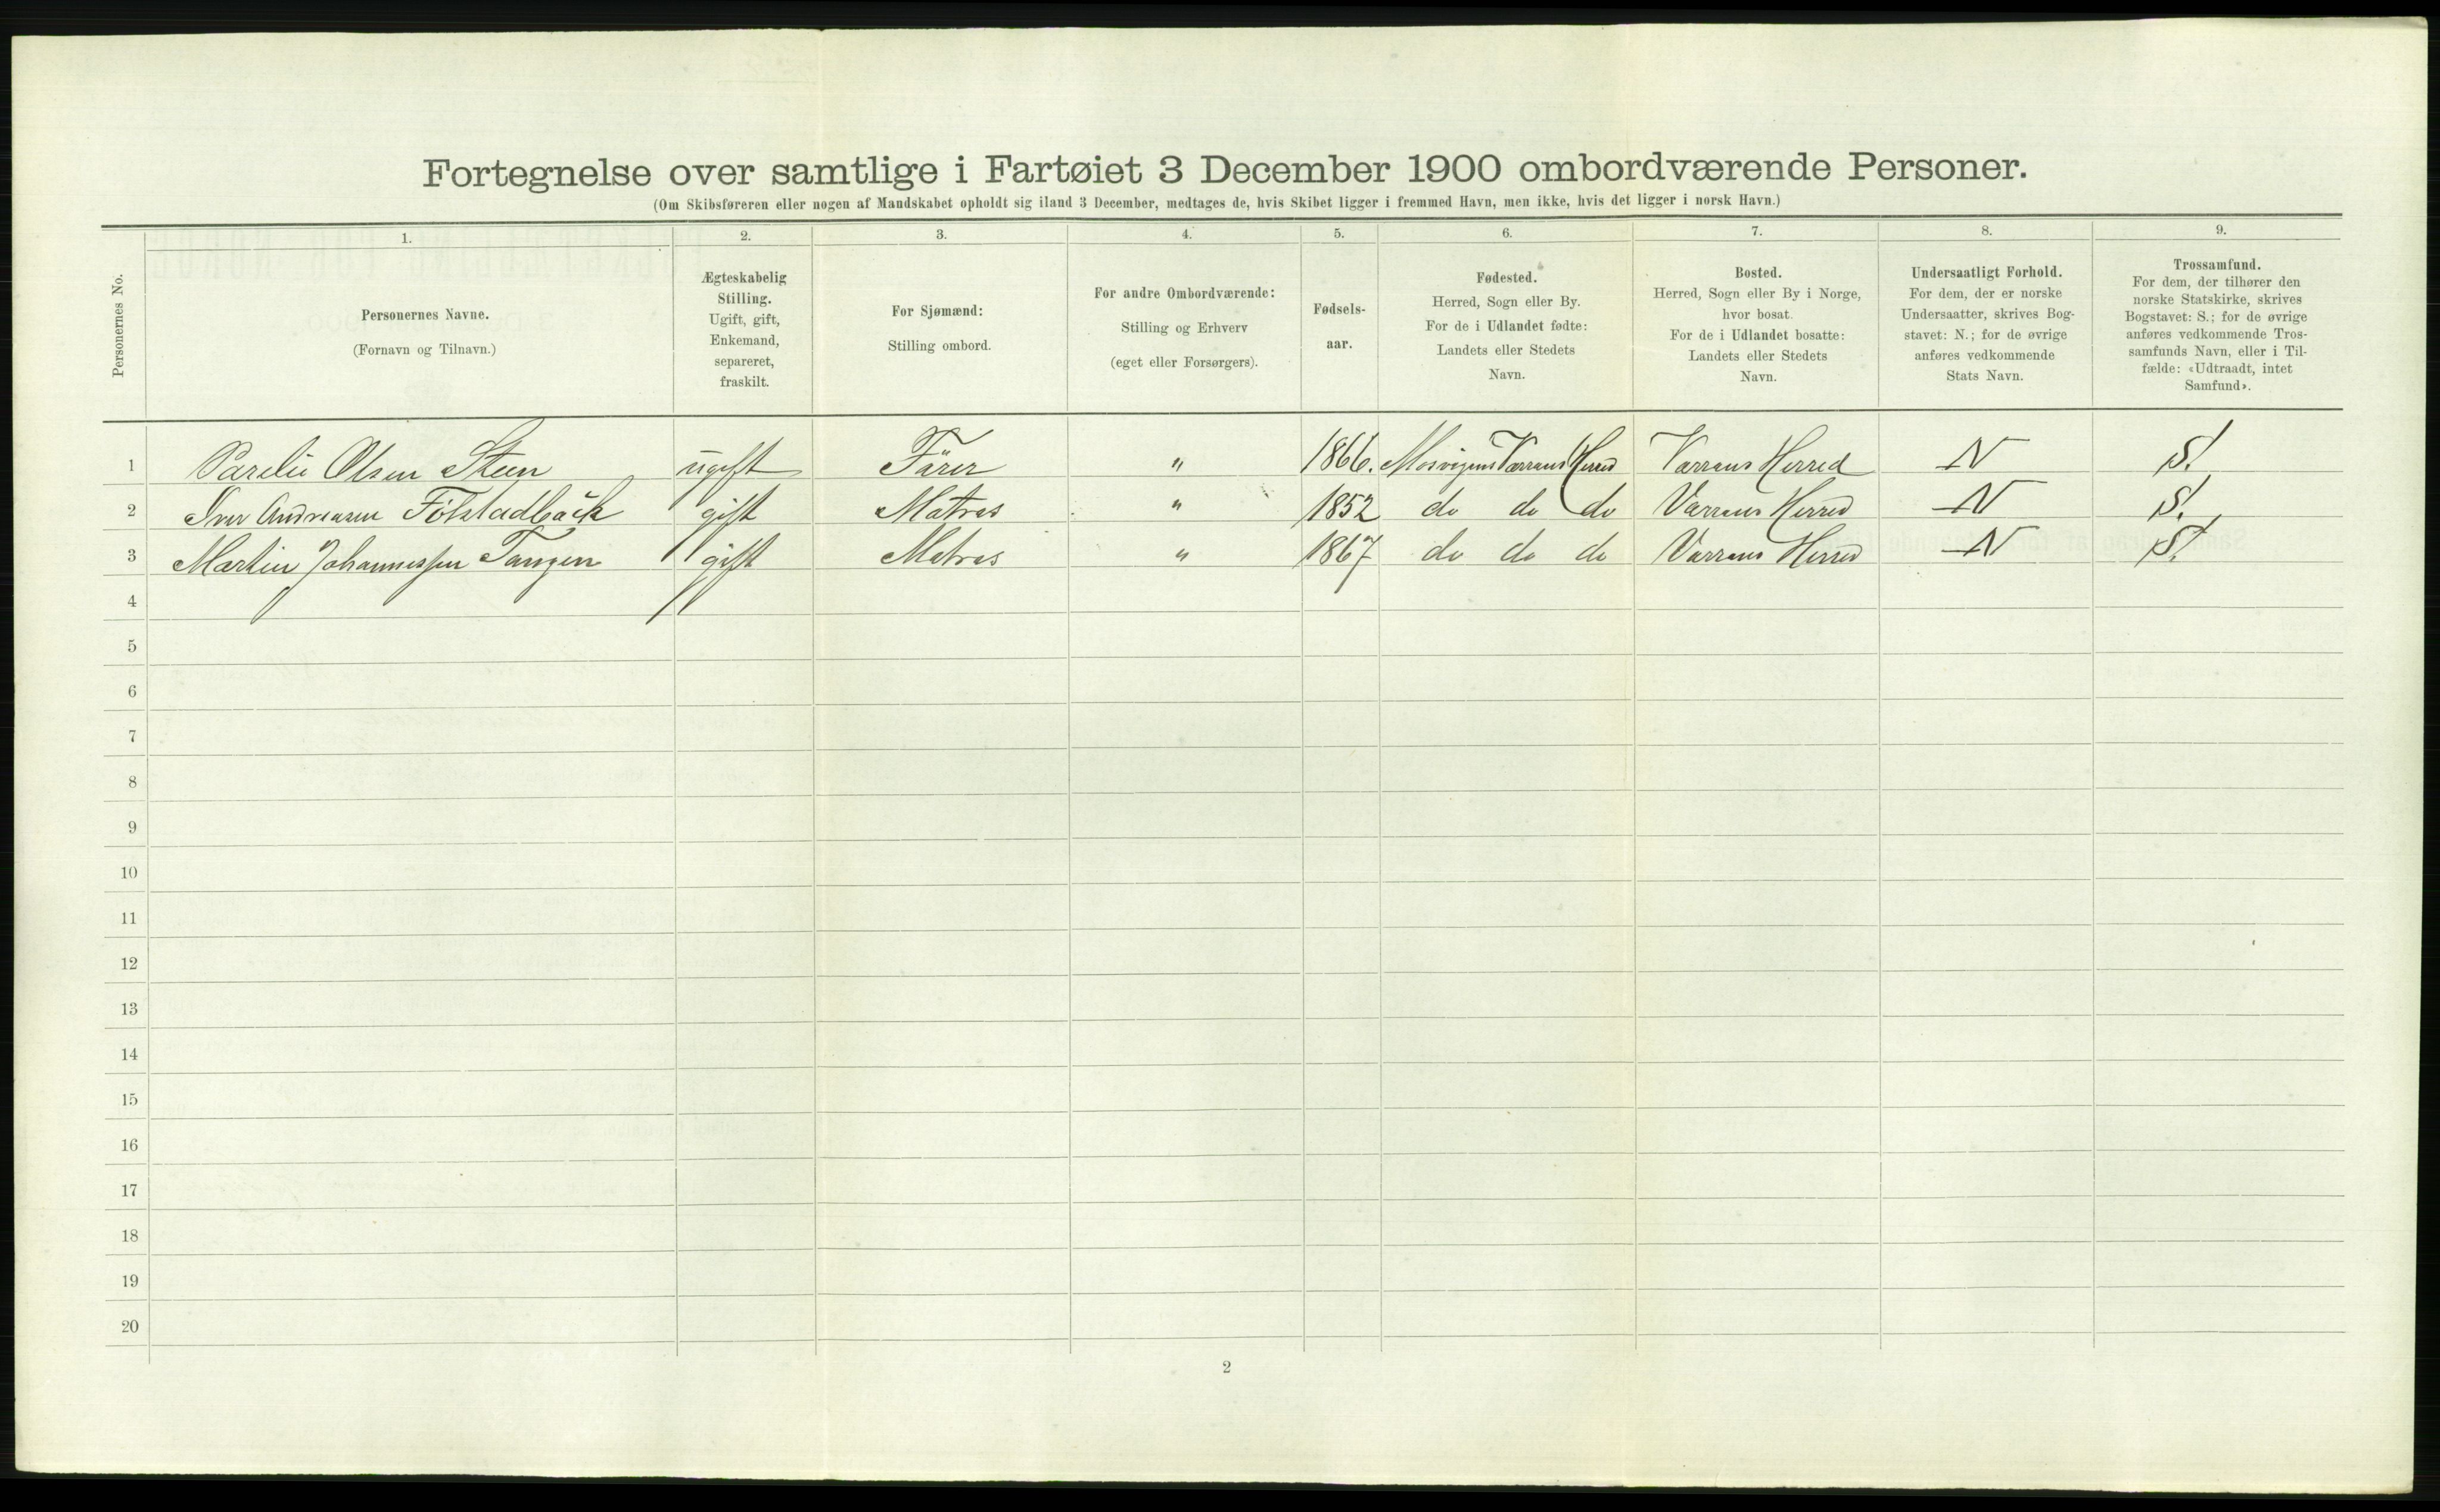 Fortegnelse over samtlige i Fartøiet 3 December 1900 ombordværende Personer.
(Om Skibsføreren eller nogen af Mandskabet opholdt sig iland 3 December, medtages de, hvis Skibet ligger i fremmed Havn, men ikke, hvis det ligger i norsk Havn.)
1. 2. 3. 4. 5. 6. 7. 8. 9.
Personernes No.
Personernes Navne.
(Fornavn og Tilnavn.)
Ægteskabelig
Stilling.
Ugift, gift,
Enkemand,
separeret,
fraskilt.
For Sjømænd:
Stilling ombord.
For andre Ombordværende:
Stilling og Erhverv
(eget eller Forsørgers).
Fødsels-
aar.
Fødested.
Herred, Sogn eller By.
For de i Udlandet fødte:
Landets eller Stedets
Navn.
Bosted.
Herred, Sogn eller By i Norge,
hvor bosat.
For de i Udlandet bosatte:
Landets eller Stedets
Navn.
Undersaatligt Forhold.
For dem, der er norske
Undersaatter, skrives Bog-
stavet: N.; for de øvrige
anføres vedkommende
Stats Navn.
Trossamfund.
For dem, der tilhører den
norske Statskirke, skrives
Bogstavet: S.; for de øvrige
anføres vedkommende Tros-
samfunds Navn, eller i Til-
fælde: «Udtraadt, intet
Samfund».
1 Olsen Steen ugift Förer " 1866. Mosvigens Værrans Herred Varrans Herred N S.
2 Iver Andreasen Fölstadbäck gift Matros " 1852 do do do Varrans Herred N S.
3 Martin Johannessen Tangen gift Matros " 1867 do do do Varrans Herred N S.
4
5
6
7
8
9
10
11
12
13
14
15
16
17
18
19
20
2